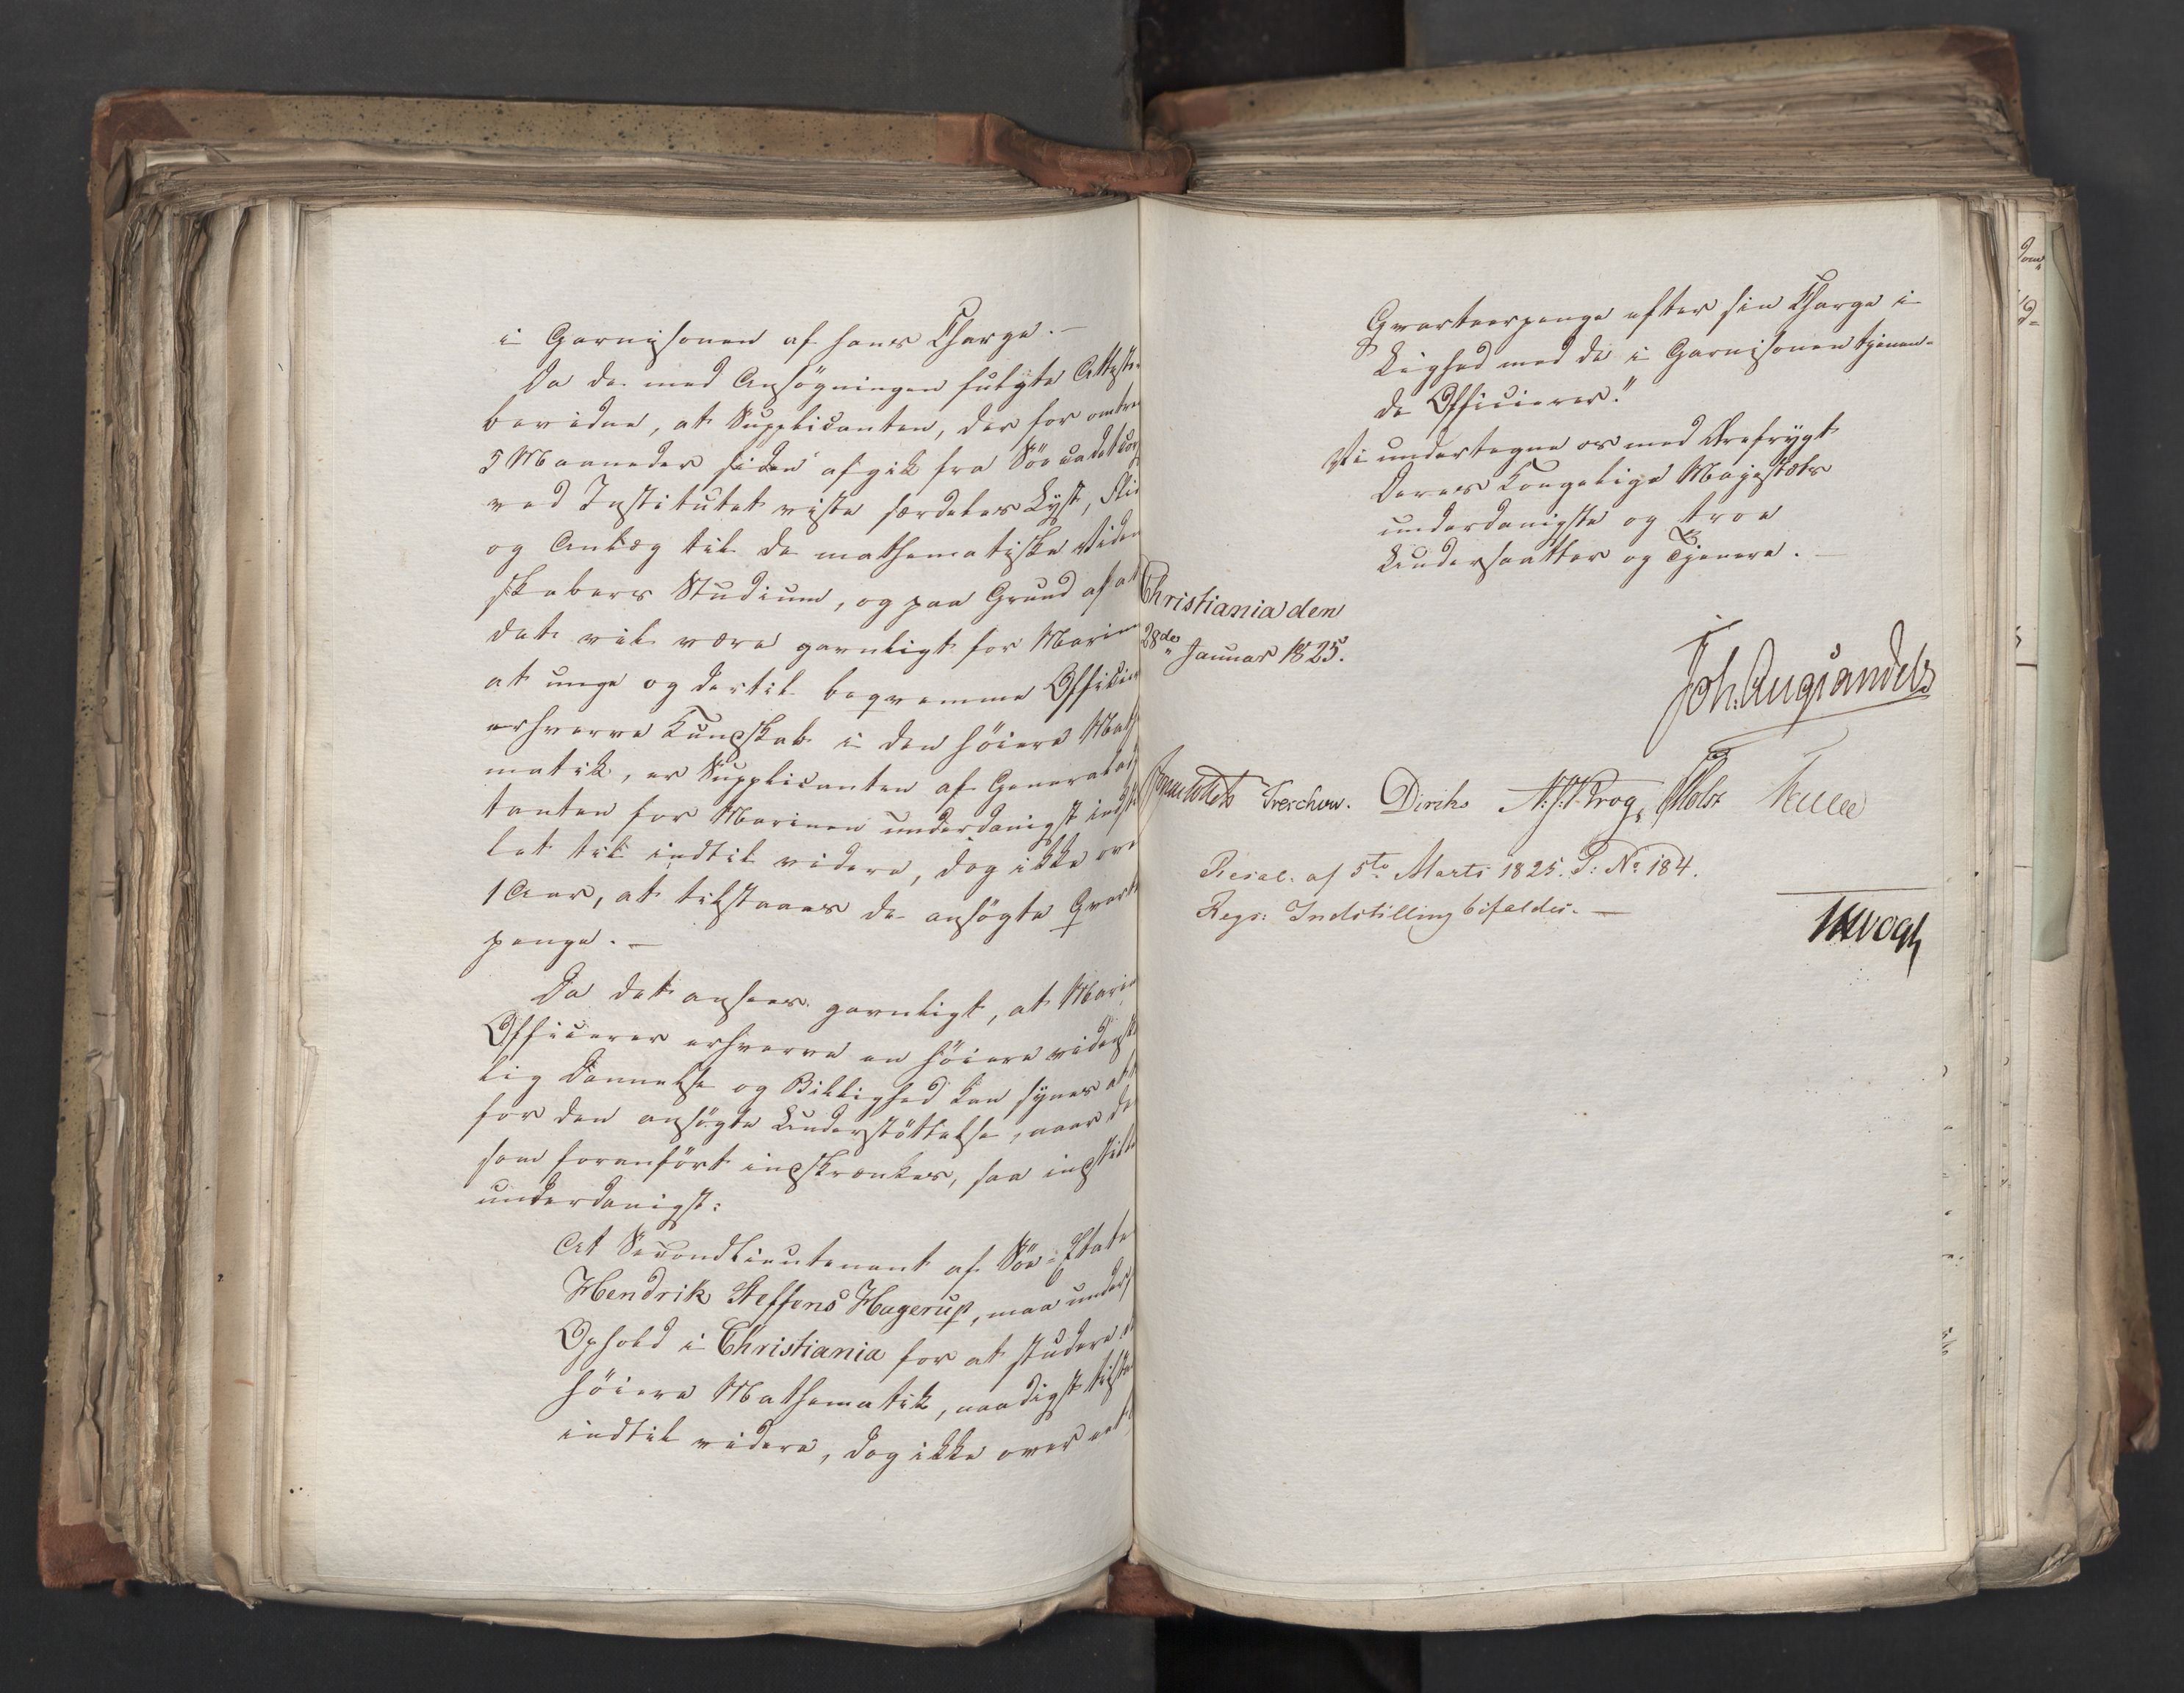 i Garnisonen af hans Charge.—
Da de med Ansøgningen fulgte Atteste
bevidne, at Supplicanten, der for omtre
5 Maaneder siden afgik fra Søe Cadetcorp
ved Institutet viste særdeles Lyst, Flid
og Anlæg til de mathematiske Viden
skabers Studium, og paa Grund af at
det vil være gavnligt for Marinen
at unge og dertil beqvemme Officier
erhverve Kundskab i den høiere Math
matik, er Supplicanten af Generaladj
tanten for Marinen underdanigst indstil
let til indtil videre, dog ikke over
1 Aar, at tilstaaes de ansøgte Qvart
penge.—
Da det ansees gavnligt, at Marin
Officerer erhverve en høiere vidensk
lig Dannelse og Billighed kan synes at
for den ansøgte Understøttelse, naar de
som foranført indskrænkes, saa indstille
underdanigst:
At Secondlieutenant af Søe-Etate
Hendrik Steffens Hagerup, maa under
Ophold i Christiania for at studere
høiere Mathematik, naadigst tilsta
indtil videre, dog ikke over eet
Qvarteerpenge efter sin Charge i
Lighed med de i Garnisonen tjenen-
de Officierer."
Vi undertegne os med Ærefrygt
Deres Kongelige Majestæts
underdanigste og troe
Undersaatter og Tjenere.—
Christiania den
28de Januar 1825.
Joh: Aug: Sandels
Treschow. Diriks Holst
Resol. af 5te Marts 1825. S: No 184.
Regs: Indstilling bifaldes.—
Vogt